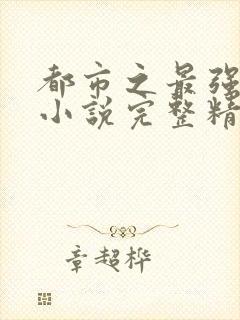 都市之最强
小说完整精
章超桦